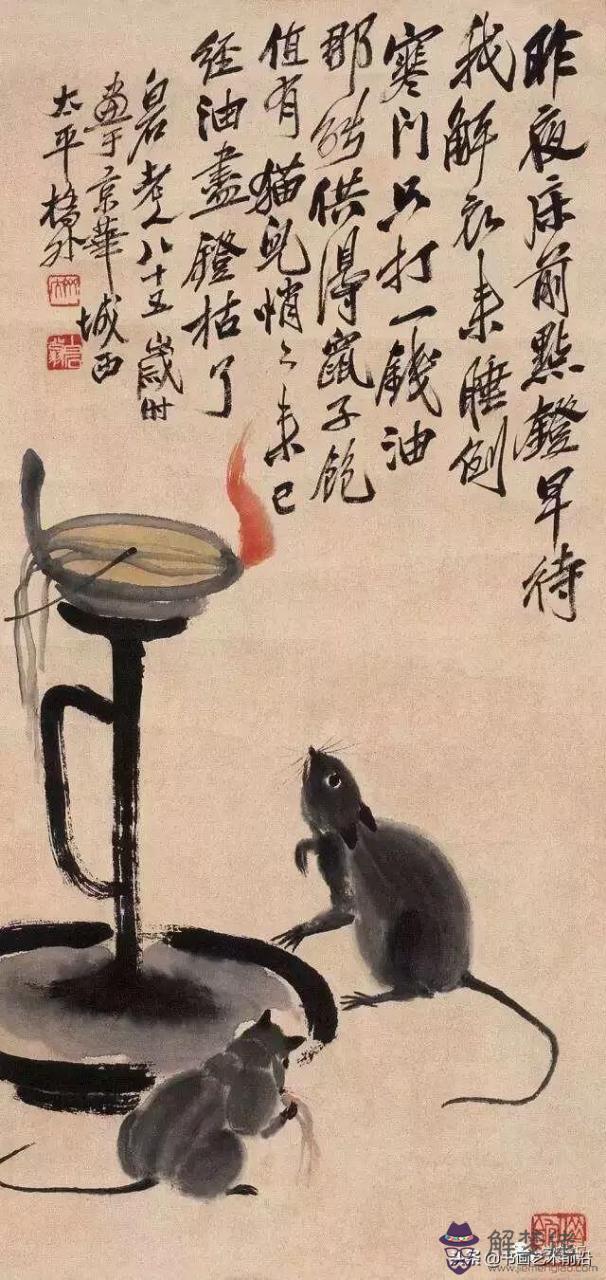 昨夜床前點鐙早待
我解衣来睡倒
寒门只打一錢油
那能供得鼠子飽
值有猫兒悄〻来已
經油盡鐙枯了
白石老人八十五歲時
畫于京華城西
太平橋外
解梦佬
头条 @书画艺术前沿
www.jiemenglao.com